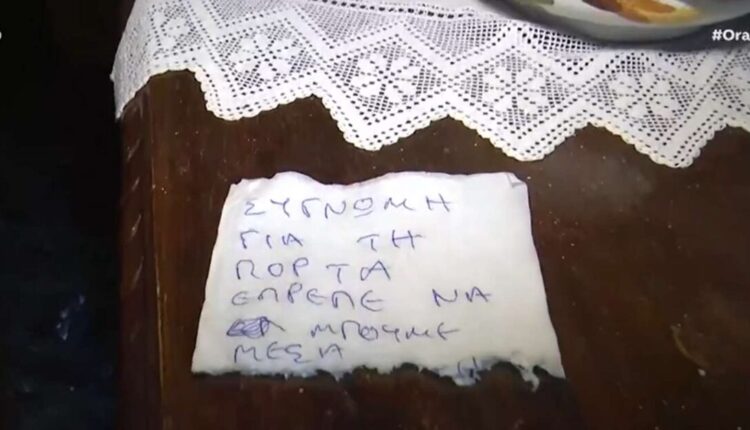 #Ora
ΣΥΓΝΩΜΗ
ΓΙΑ ΤΗ
ΠΟΡΤΑ
ΕΠΡΕΠΕ ΝΑ
ΜΠΟΥΜΕ
ΜΕΣΑ